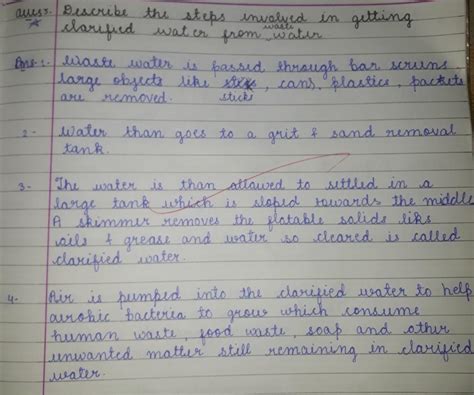 Ques. Describe the steps involved in getting
clarified water from waste water
Ans- 1. Waste water is passed through bar screens.
large objects like stick, cans, plastics, packets
are removed.
2- Water than goes to a grit & sand removal
tank.
3- The water is than allowed to settled in a
large tank which is sloped towards the middle.
A skimmer removes the flotable solids like
oils & grease and water so cleared is called
clarified water.
4- Air is pumped into the clarified water to help
aerobic bacteria to grow which consume
human waste, food waste, soap and other
unwanted matter still remaining in clarified
water.